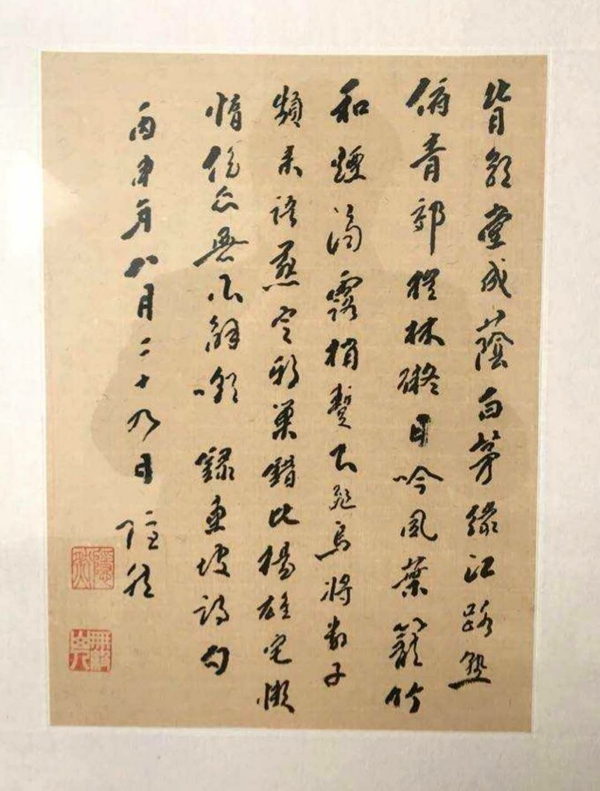 背郭堂成蔭白茅緣江路熟
俯青郊榿林礙日吟風葉籠竹
和煙滴露梢暫下飛烏將數子
頻來語燕定新巢錯比楊雄宅懶
惰無解嘲 錄東坡詩句
丙申年八月二十九日